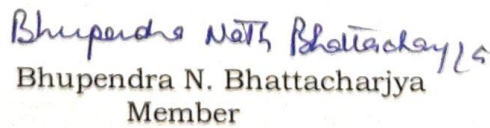 Bhupendra Nath Bhattacharjya
Bhupendra N. Bhattacharjya
Member